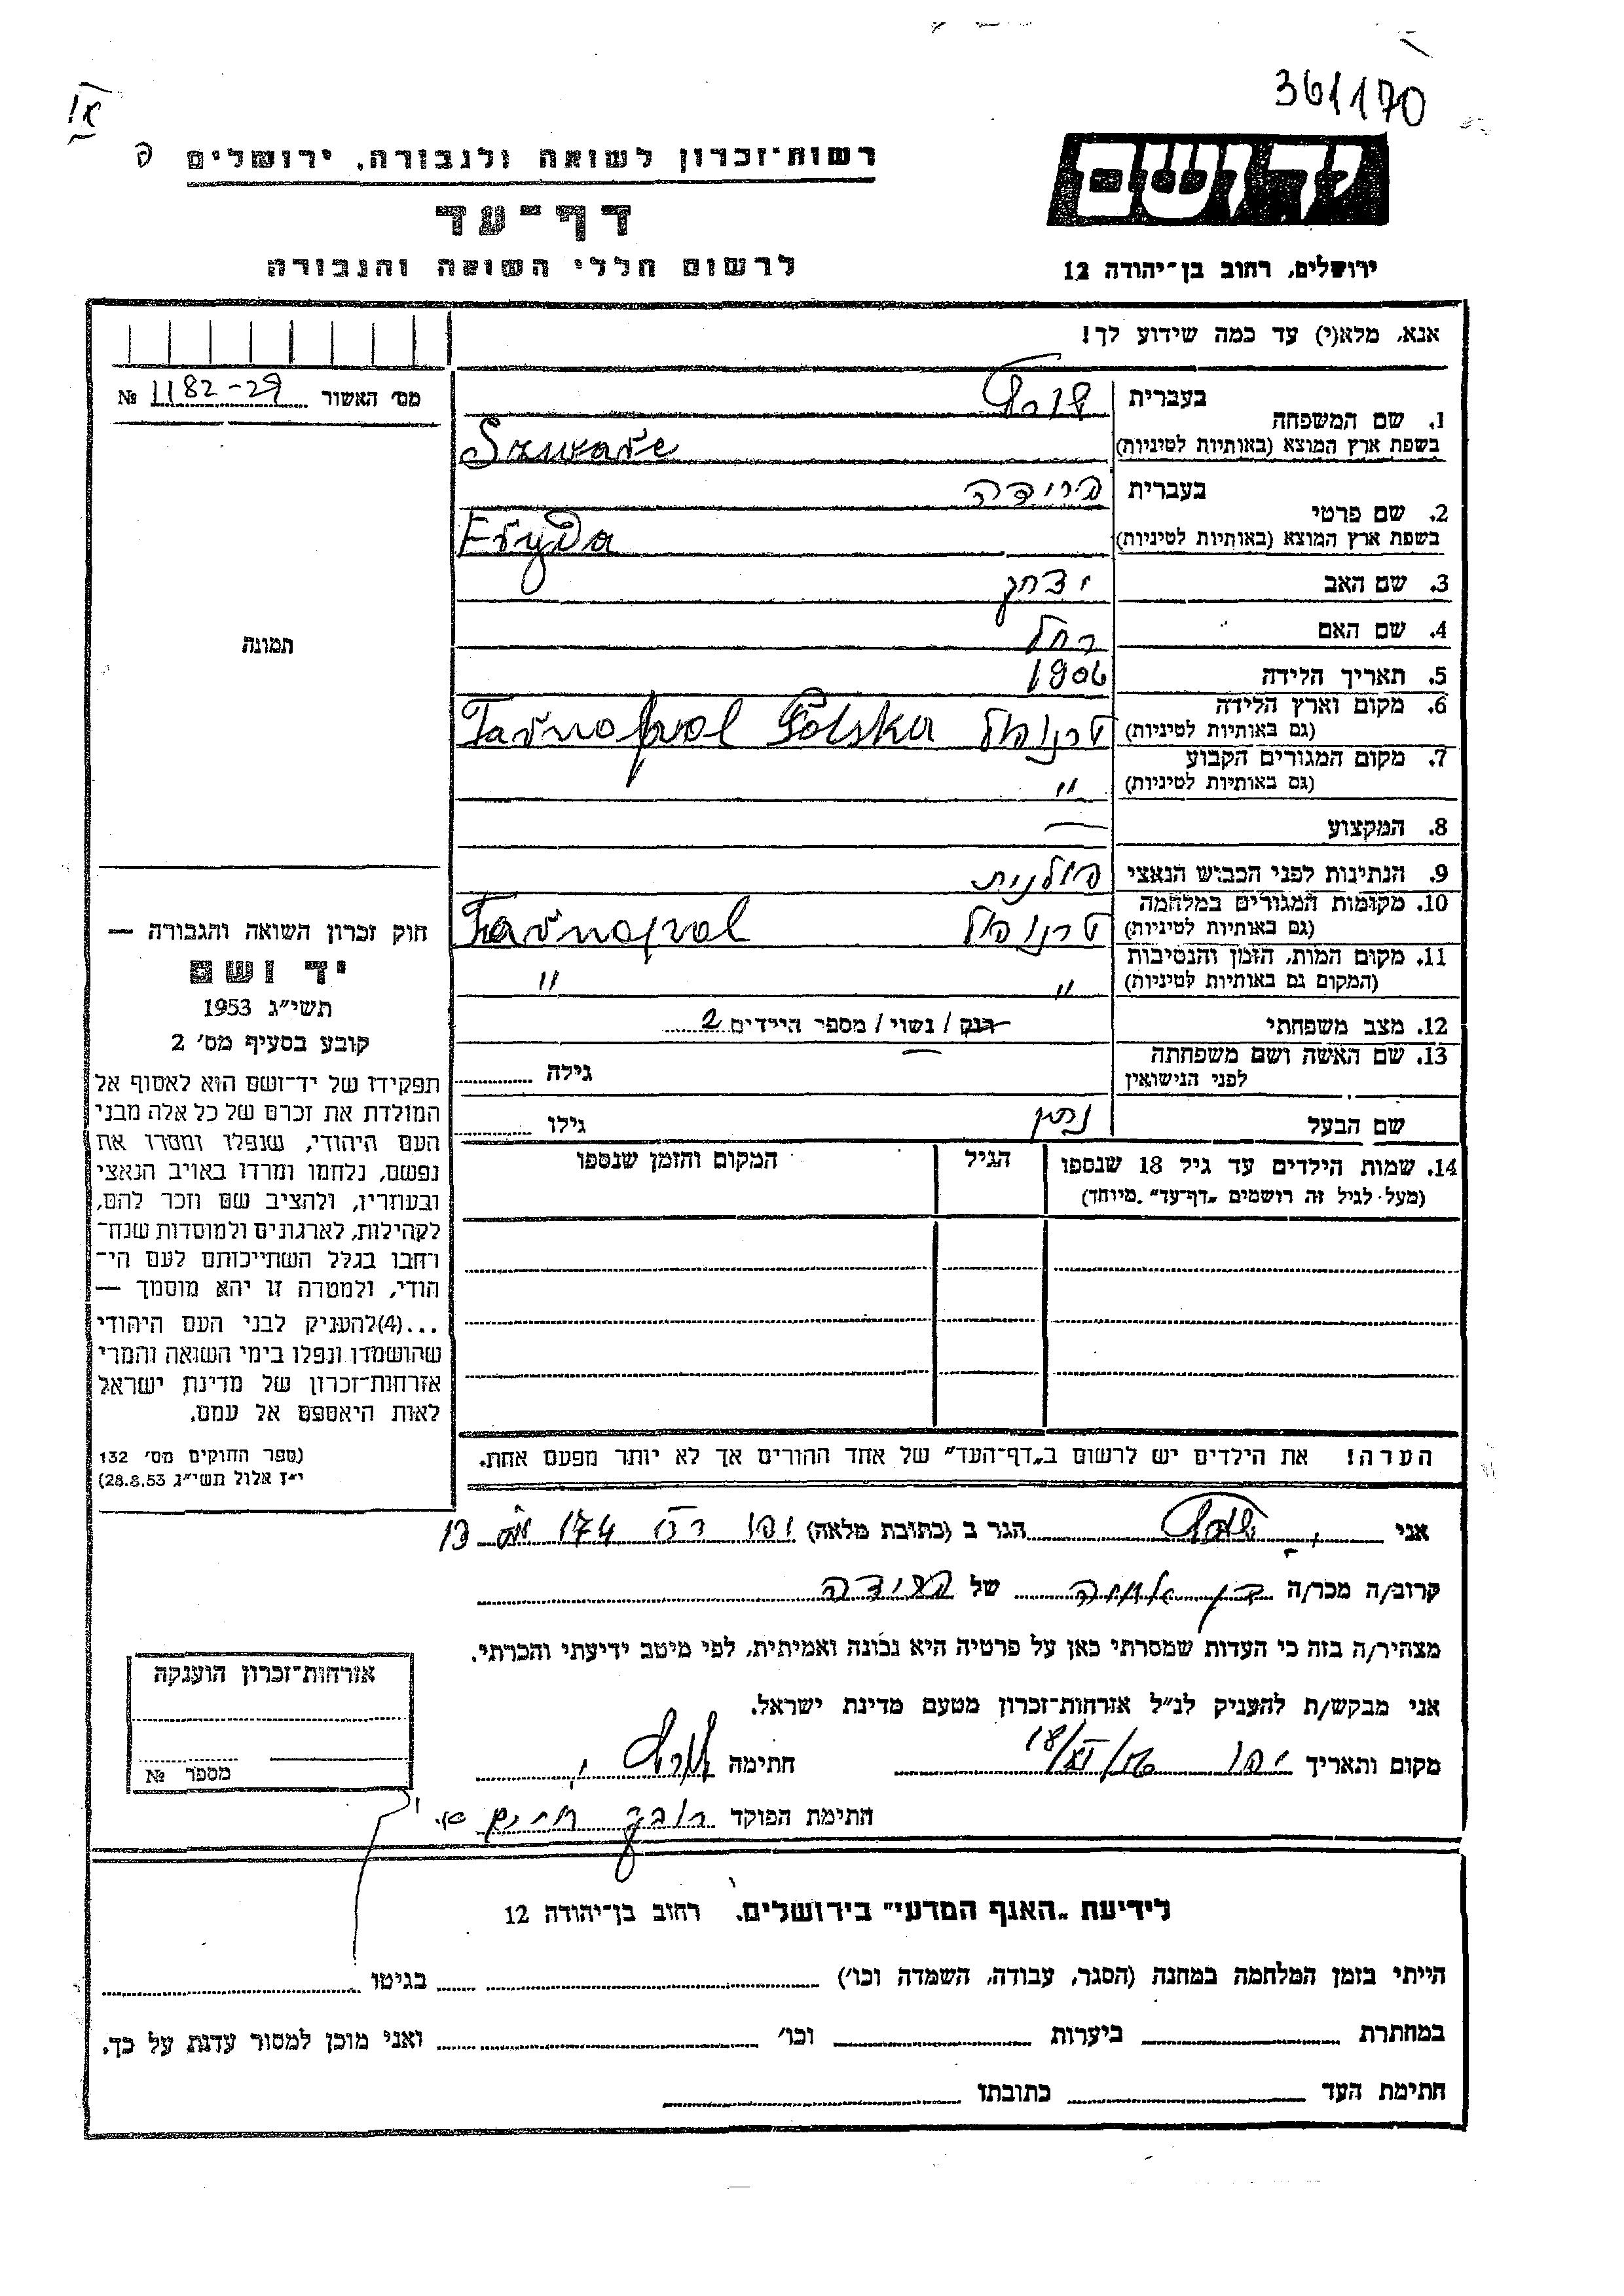 361170
רשות־זכרון לשואה ולגבורה, ירושלים
דף־עד
לרשום חללי השואה והגבורה
יד ושם
ירושלים, רחוב בן־יהודה 12
אנא, מלא(י) עד כמה שידוע לך!
מס׳ האשור 1182-29 №
1. שם המשפחה
בעברית
בשפת ארץ המוצא (באותיות לטיניות) Szwarc
2. שם פרטי
בעברית פרידה
בשפת ארץ המוצא (באותיות לטיניות) Fryda
3. שם האב יצחק
4. שם האם רחל
5. תאריך הלידה 1906
6. מקום וארץ הלידה
(גם באותיות לטיניות) טרנופול Tarnopol Polska
7. מקום המגורים הקבוע
(גם באותיות לטיניות) "
8. המקצוע —
9. הנתינות לפני הכבוש הנאצי פולנית
10. מקומות המגורים במלחמה
(גם באותיות לטיניות) טרנופול Tarnopol
11. מקום המות, הזמן והנסיבות
(המקום גם באותיות לטיניות) " "
12. מצב משפחתי רווק / נשוי / מספר הילדים 2
13. שם האשה ושם משפחתה
לפני הנישואין גילה
שם הבעל נתן גילו
14. שמות הילדים עד גיל 18 שנספו הגיל המקום והזמן שנספו
(מעל לגיל זה רושמים „דף־עד" מיוחד)
הערה! את הילדים יש לרשום ב„דף־העד" של אחד ההורים אך לא יותר מפעם אחת.
תמונה
חוק זכרון השואה והגבורה —
יד ושם
תשי״ג 1953
קובע בסעיף מס׳ 2
תפקידו של יד־ושם הוא לאסוף אל
המולדת את זכרם של כל אלה מבני
העם היהודי, שנפלו ומסרו את
נפשם, נלחמו ומרדו באויב הנאצי
ובעוזריו, ולהציב שם וזכר להם,
לקהילות, לארגונים ולמוסדות שנח־
רחבו בגלל השתייכותם לעם הי־
הודי, ולמטרה זו יהא מוסמך —
...(4)להעניק לבני העם היהודי
שהושמדו ונפלו בימי השואה והמרי
אזרחות־זכרון של מדינת ישראל
לאות היאספם אל עמם.
(ספר החוקים מס׳ 132
י״ז אלול תשי״ג 28.8.53)
אני הגר ב (כתובת מלאה) יפו 174
קרוב/ה מכר/ה בן של פרידה
מצהיר/ה בזה כי העדות שמסרתי כאן על פרטיה היא נכונה ואמיתית, לפי מיטב ידיעתי והכרתי.
אני מבקש/ת להעניק לנ״ל אזרחות־זכרון מטעם מדינת ישראל.
מקום ותאריך יפו 18/XI/56 חתימה
חתימת הפוקד חיים
אזרחות־זכרון הוענקה
מספר №
לידיעת „האגף המדעי" בירושלים. רחוב בן־יהודה 12
הייתי בזמן המלחמה במחנה (הסגר, עבודה, השמדה וכו׳) בגיטו
במחתרת ביערות וכו׳ ואני מוכן למסור עדות על כך.
חתימת העד כתובתו